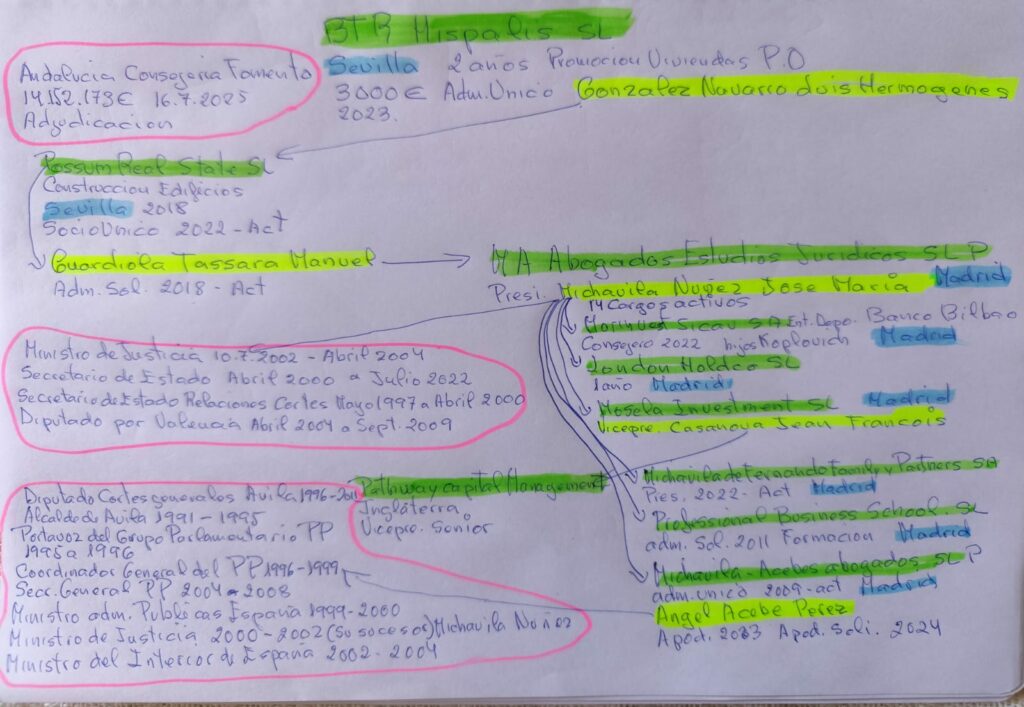 BTR Hispalis SL
Andalucia Consegeria Fomento
14.152.173€ 16.7.2025
Adjudicacion
Sevilla 2 años Promocion Viviendas P.O
3000€ Adm.Unico Gonzalez Navarro Luis Hermogenes
2023.
Possum Real State SL
Construccion Edificios
Sevilla 2018
SocioUnico 2022 - Act
Guardiola Tassara Manuel
Adm. Sol. 2018 - Act
MA Abogados Estudios Juridicos SLP
Presi. Michavila Nuñez Jose Maria Madrid
14 Cargos activos
Morinvest Sicav SA Ent. Depo. Banco Bilbao
Consejero 2022 hijas Koplovich Madrid
London Holdco SL
1 año Madrid
Mosela Investment SL Madrid
Vicepre. Casanova Jean Francois
Ministro de Justicia 10.7.2002 - Abril 2004
Secretario de Estado Abril 2000 a Julio 2022
Secretario de Estado Relaciones Cortes Mayo 1997 a Abril 2000
Diputado por Valencia Abril 2004 a Sept. 2009
Pathway capital Management
Inglaterra
Vicepre. Senior
Michavila de Fernando Family Partners SA
Pres. 2022 - Act Madrid
Professional Business School. SL
adm. Sol. 2011 Formacion Madrid
Michavila - Acebes abogados SLP
adm. unico 2009-act Madrid
Angel Acebe Perez
Apod. 2023 Apod. Soli. 2024
Diputado Cortes generales Avila 1996-2011
Alcalde de Avila 1991 - 1995
Portavoz del Grupo Parlamentario PP
1995 a 1996
Coordinador General del PP 1996-1999
Secr. General PP 2004 a 2008
Ministro adm. Publicas España 1999-2000
Ministro de Justicia 2000-2002 (Su sucesos) Michavila Nuñez
Ministro del Interior de España 2002 - 2004